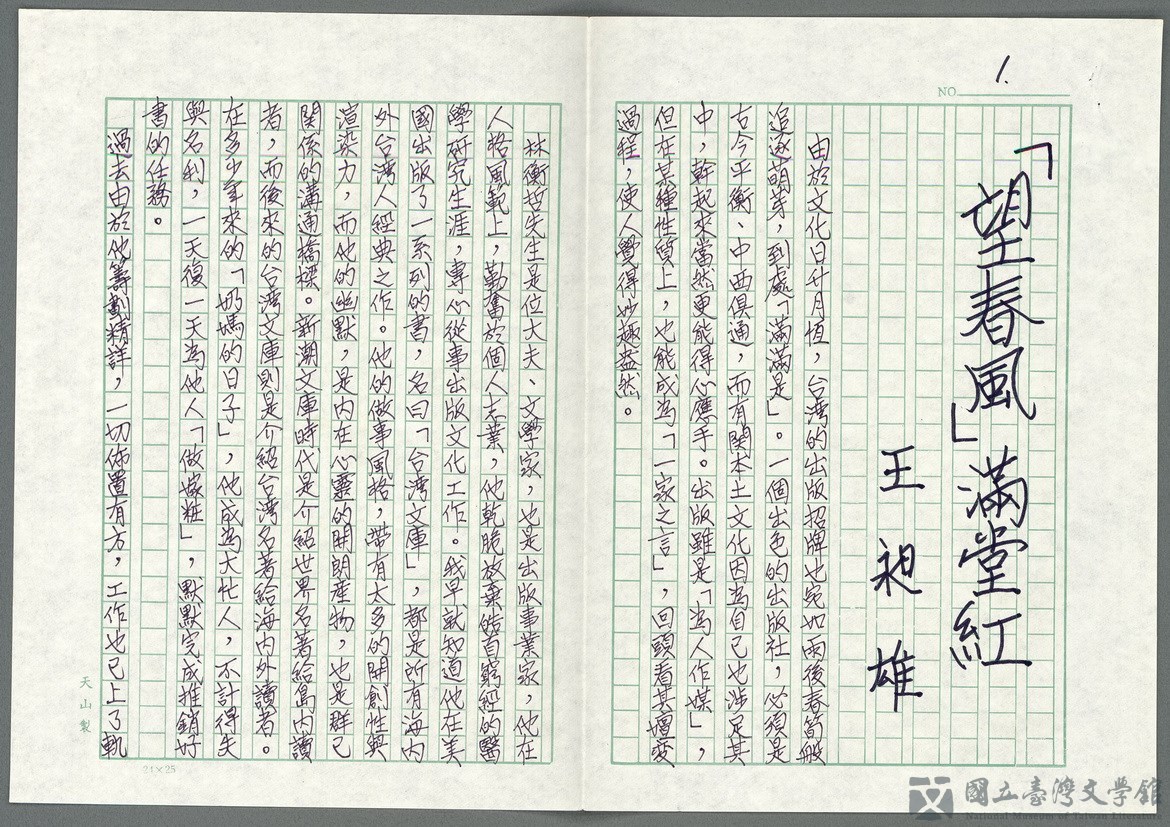 1.
NO.
「望春風」滿堂紅
王昶雄
由於文化日升月恆，台灣的出版招牌也宛如雨後春筍般
追逐萌芽，到處「滿滿是」。一個出色的出版社，必須是
古今平衡、中西俱通，而有関本土文化因為自己也涉足其
中，幹起來當然更能得心應手。出版雖是「為人作媒」，
但在某種性質上，也能成為「一家之言」，回頭看其嬗変
過程，使人覺得妙趣盎然。
林衡哲先生是位大夫、文學家，也是出版事業家，他在
人格風範上，勤奮於個人志業，他乾脆放棄皓首窮經的醫
學研究生涯，專心從事出版文化工作。我早就知道他在美
國出版了一系列的書，名曰「台灣文庫」，都是所有海內
外台灣人經典之作。他的做事風格，帶有太多的開創性與
渲染力，而他的幽默，是內在心靈的開朗産物，也是群己
関係的溝通橋樑。新潮文庫時代是介紹世界名著給島內讀
者，而後來的台灣文庫則是介紹台灣名著給海內外讀者。
在多少年來的「奶媽的日子」，他成為大忙人，不計得失
與名利，一天復一天為他人「做嫁粧」，默默完成推銷好
書的任務。
過去由於他籌劃精詳，一切佈置有方，工作也已上了軌
天山製
24×25
國立臺灣文學館
National Museum of Taiwan Literature